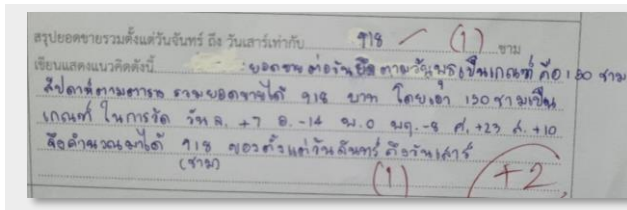 สรุปยอดขายรวมตั้งแต่วันจันทร์ ถึง วันเสาร์เท่ากับ 918 (1) ชาม
เขียนแสดงแนวคิดดังนี้ : ยอดขายต่อวันยึดตามวันพุธเป็นเกณฑ์ คือ 130 ชาม
สัปดาห์ตามตาราง รวมยอดขายได้ 918 บาท โดยเอา 130 ชามเป็น
เกณฑ์ ในการวัด วัน จ. +7 อ. -14 พ. 0 พฤ. -8 ศ. +23 ส. +10
จึงคำนวณมาได้ 918 ของตั้งแต่วันจันทร์ถึงวันเสาร์
(ชาม) (1) +2